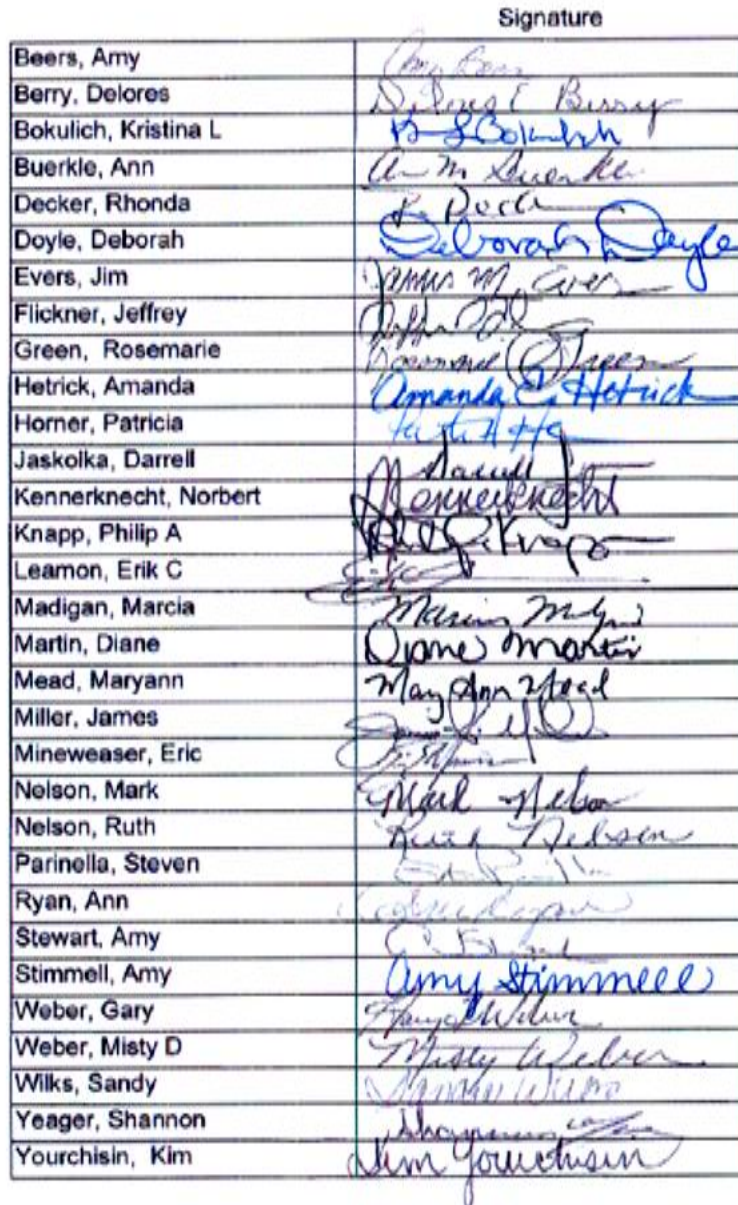 Signature
Beers, Amy
Berry, Delores Delores E Berry
Bokulich, Kristina L
Buerkle, Ann Ann M Buerkle
Decker, Rhonda
Doyle, Deborah Deborah Doyle
Evers, Jim James M. Evers
Flickner, Jeffrey
Green, Rosemarie Rosemarie Green
Hetrick, Amanda Amanda C. Hetrick
Horner, Patricia
Jaskolka, Darrell Darrell J
Kennerknecht, Norbert Kennerknecht
Knapp, Philip A Knapp
Leamon, Erik C
Madigan, Marcia Marcia
Martin, Diane Diane Martin
Mead, Maryann Mary Ann Mead
Miller, James
Mineweaser, Eric
Nelson, Mark Mark Nelson
Nelson, Ruth Ruth Nelson
Parinella, Steven
Ryan, Ann
Stewart, Amy
Stimmell, Amy Amy Stimmell
Weber, Gary Weber
Weber, Misty D Misty Weber
Wilks, Sandy
Yeager, Shannon Shannon
Yourchisin, Kim Kim Yourchisin